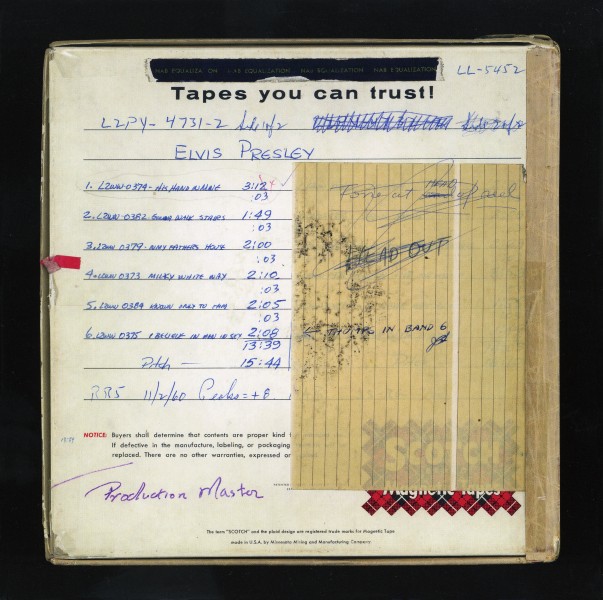 NAB EQUALIZATION NAB EQUALIZATION NAB EQUALIZATION NAB EQUALIZATION
LL-5452
Tapes you can trust!
L2PY-4731-2
ELVIS PRESLEY
1. L2WW 0374 - HIS HAND IN MINE 3:12
:03
2. L2WW 0382 1:49
:03
3. L2WW 0379 - IN MY FATHERS HOUSE 2:00
:03
4. L2WW 0373 MILKY WHITE WAY 2:10
:03
5. L2WW 0384 KNOWN ONLY TO HIM 2:05
:03
6. L2WW 0375 I BELIEVE IN 2:08
13:39
Pitch — 15:44
11/2/60 Peaks = +8
HEAD OUT
← IN BAND 6
NOTICE: Buyers shall determine that contents are proper kind
If defective in the manufacture, labeling, or packaging
replaced. There are no other warranties, expressed or
Production Master
Magnetic Tapes
The term "SCOTCH" and the plaid design are registered trade marks for Magnetic Tape
made in U.S.A. by Minnesota Mining and Manufacturing Company